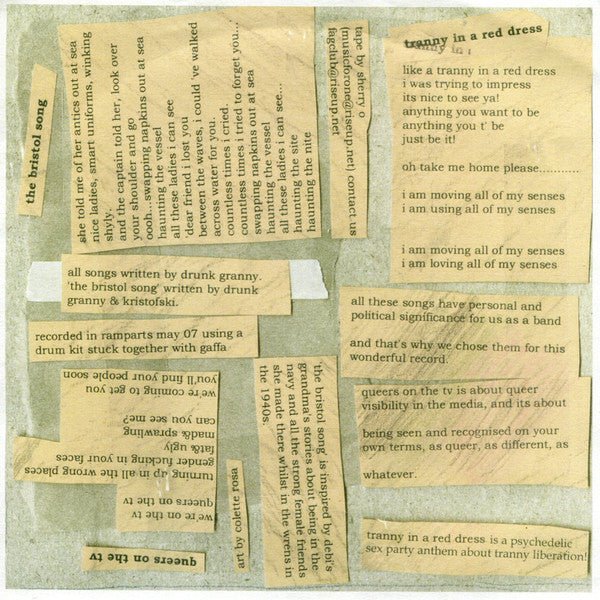 the bristol song
she told me of her antics out at sea
nice ladies, smart uniforms, winking
shyly.
and the captain told her, look over
your shoulder and go
oooh...swapping napkins out at sea
haunting the vessel
all these ladies i can see
'dear friend i lost you
between the waves, i could 've walked
across water for you.
countless times i cried.
countless times i tried to forget you...
swapping napkins out at sea
haunting the vessel
all these ladies i can see...
haunting the site
haunting the nite
tape by sherry o
(musicforone@riseup.net) contact us
fagclub@riseup.net
tranny in a red dress
like a tranny in a red dress
i was trying to impress
its nice to see ya!
anything you want to be
anything you t' be
just be it!
oh take me home please............
i am moving all of my senses
i am using all of my senses
i am moving all of my senses
i am loving all of my senses
all songs written by drunk granny.
'the bristol song' written by drunk
granny & kristofski.
recorded in ramparts may 07 using a
drum kit stuck together with gaffa
all these songs have personal and
political significance for us as a band
and that's why we chose them for this
wonderful record.
queers on the tv is about queer
visibility in the media, and its about
being seen and recognised on your
own terms, as queer, as different, as
whatever.
tranny in a red dress is a psychedelic
sex party anthem about tranny liberation!
'the bristol song' is inspired by debi's
grandma's stories about being in the
navy and all the strong female friends
she made there whilst in the wrens in
the 1940s.
art by colette rosa
queers on the tv
we're on the tv
queers on the tv
turning up in all the wrong places
gender fucking in your faces
fat& ugly
mad& sprawling
can you see me?
we're coming to get you
you'll find your people soon